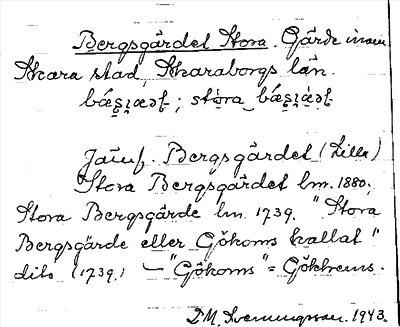 Bergsgärdet Stora. Gärde inom
Skara stad, Skaraborgs län.
Jämf. Bergsgärdet (Lilla)
Stora Bergsgärdet lm. 1880.
Stora Bergsgärde lm. 1739. "Stora
Bergsgärde eller Gökoms kallat"
dito (1739.) — "Gökoms" = Gökhems.
D. M. Svenningsson. 1943.